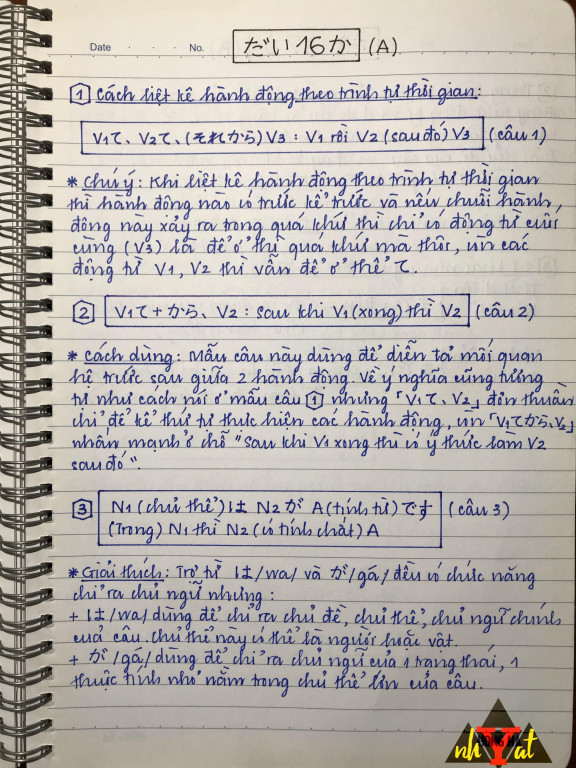 Date No. だい16か (A)
1 Cách liệt kê hành động theo trình tự thời gian:
V1て、V2て、(それから) V3 : V1 rồi V2 (sau đó) V3 (câu 1)
* Chú ý: Khi liệt kê hành động theo trình tự thời gian
thì hành động nào có trước kể trước và nếu chuỗi hành
động này xảy ra trong quá khứ thì chỉ có động từ cuối
cùng (V3) là để ở thì quá khứ mà thôi, còn các
động từ V1, V2 thì vẫn để ở thể て.
2 V1て+から、V2 : Sau khi V1 (xong) thì V2 (câu 2)
* Cách dùng: Mẫu câu này dùng để diễn tả mối quan
hệ trước sau giữa 2 hành động. Về ý nghĩa cũng tương
tự như cách nói ở mẫu câu 1 nhưng「V1て、V2」đơn thuần
chỉ để kể thứ tự thực hiện các hành động, còn「V1てから、V2」
nhấn mạnh ở chỗ "sau khi V1 xong thì có ý thức làm V2
sau đó".
3 N1 (chủ thể) は N2 が A (tính từ) です (câu 3)
(Trong) N1 thì N2 (có tính chất) A
* Giải thích: Trợ từ は/wa/ và が/gá/ đều có chức năng
chỉ ra chủ ngữ nhưng:
+ は/wa/ dùng để chỉ ra chủ đề, chủ thể, chủ ngữ chính
của câu. Chủ thể này có thể là người hoặc vật.
+ が/gá/ dùng để chỉ ra chủ ngữ của 1 trạng thái, 1
thuộc tính nhỏ nằm trong chủ thể lớn của câu.
nh at